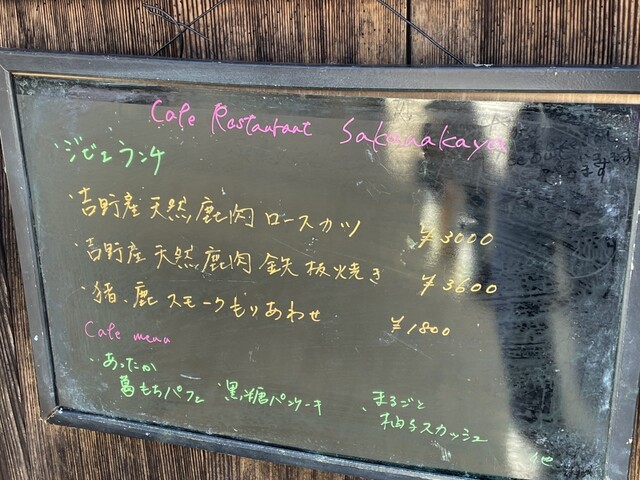 Cafe Restaurant Sakanakaya
・ジビエランチ
・吉野産 天然鹿肉 ロースカツ ¥3000
・吉野産 天然鹿肉 鉄板焼き ¥3600
・猪、鹿 スモークもりあわせ ¥1800
Cafe menu
・あったか
葛もちパフェ
・黒糖パンケーキ
、まるごと
柚子スカッシュ
他